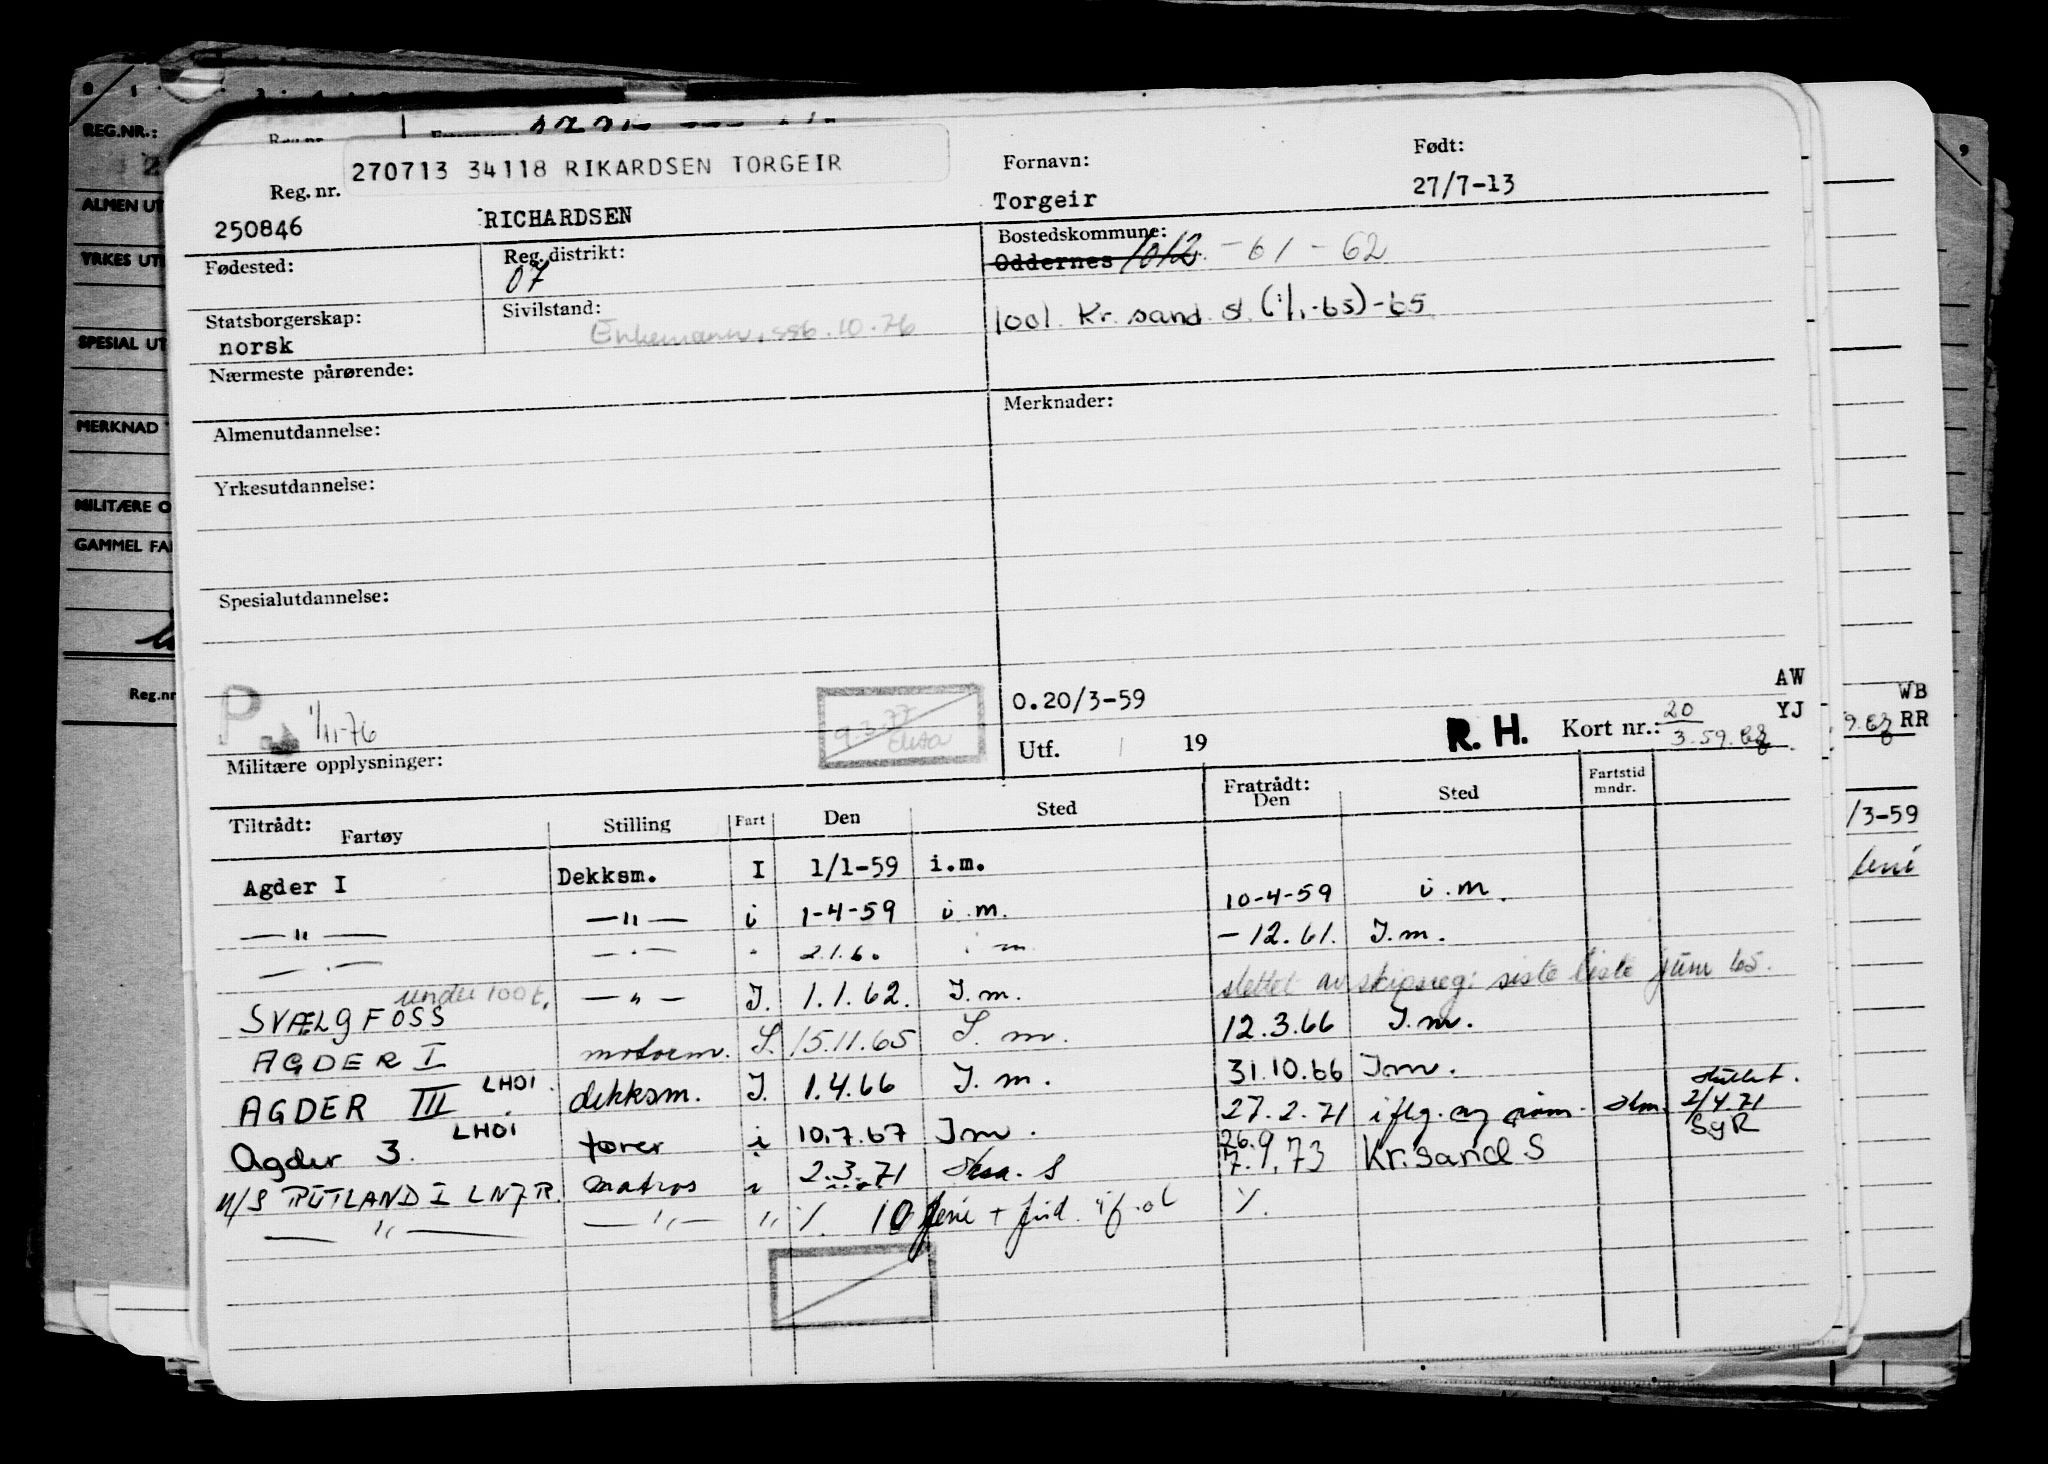 REG.NR.:
ALMEN UT
YRKES UT
SPESIAL UT
MERKNAD
MILITÆRE O
GAMMEL FA
Reg.nr
270713 34118 RIKARDSEN TORGEIR
Reg. nr.
Fornavn:
Født:
250846
RICHARDSEN
Torgeir
27/7-13
Fødested:
Reg. distrikt:
07
Bostedskommune:
Oddernes 1012 -61-62
Statsborgerskap:
norsk
Sivilstand:
Enkemann, 10-76
1001. Kr.sand. S. (1/1-65)-65
Nærmeste pårørende:
Almenutdannelse:
Merknader:
Yrkesutdannelse:
Spesialutdannelse:
P. 1/11-76
9.3.77
O.20/3-59
AW
YJ
Militære opplysninger:
Utf. 19
R. H. Kort nr.: 20
3.59.
Tiltrådt: Fartøy
Stilling
Fart
Den
Sted
Fratrådt: Den
Sted
Fartstid mndr.
Agder I Dekksm. I 1/1-59 i.m.
— " — — " — i 1-4-59 i.m. 10-4-59 i.m.
— " — — " — " 2.1.6. i m -12.61. I.m.
SVÆLGFOSS under 100t. — " — I. 1.1.62. I.m. slettet av skipsreg: siste liste juni 65.
AGDER I motorm. I. 15.11.65 I. m. 12.3.66 I.m.
AGDER III LHOI. dekksm. I. 1.4.66 I.m. 31.10.66 I m.
Agder 3. LHOI fører i 10.7.67 I m. 27.2.71 iflg. 2/4.71 SyR
M/S RUTLAND I LNJR. matros i 2.3.71 S 26.9 7.9.73 Kr.sand S
— " — — " — " ./. 10 ./.
WB
RR
/3-59